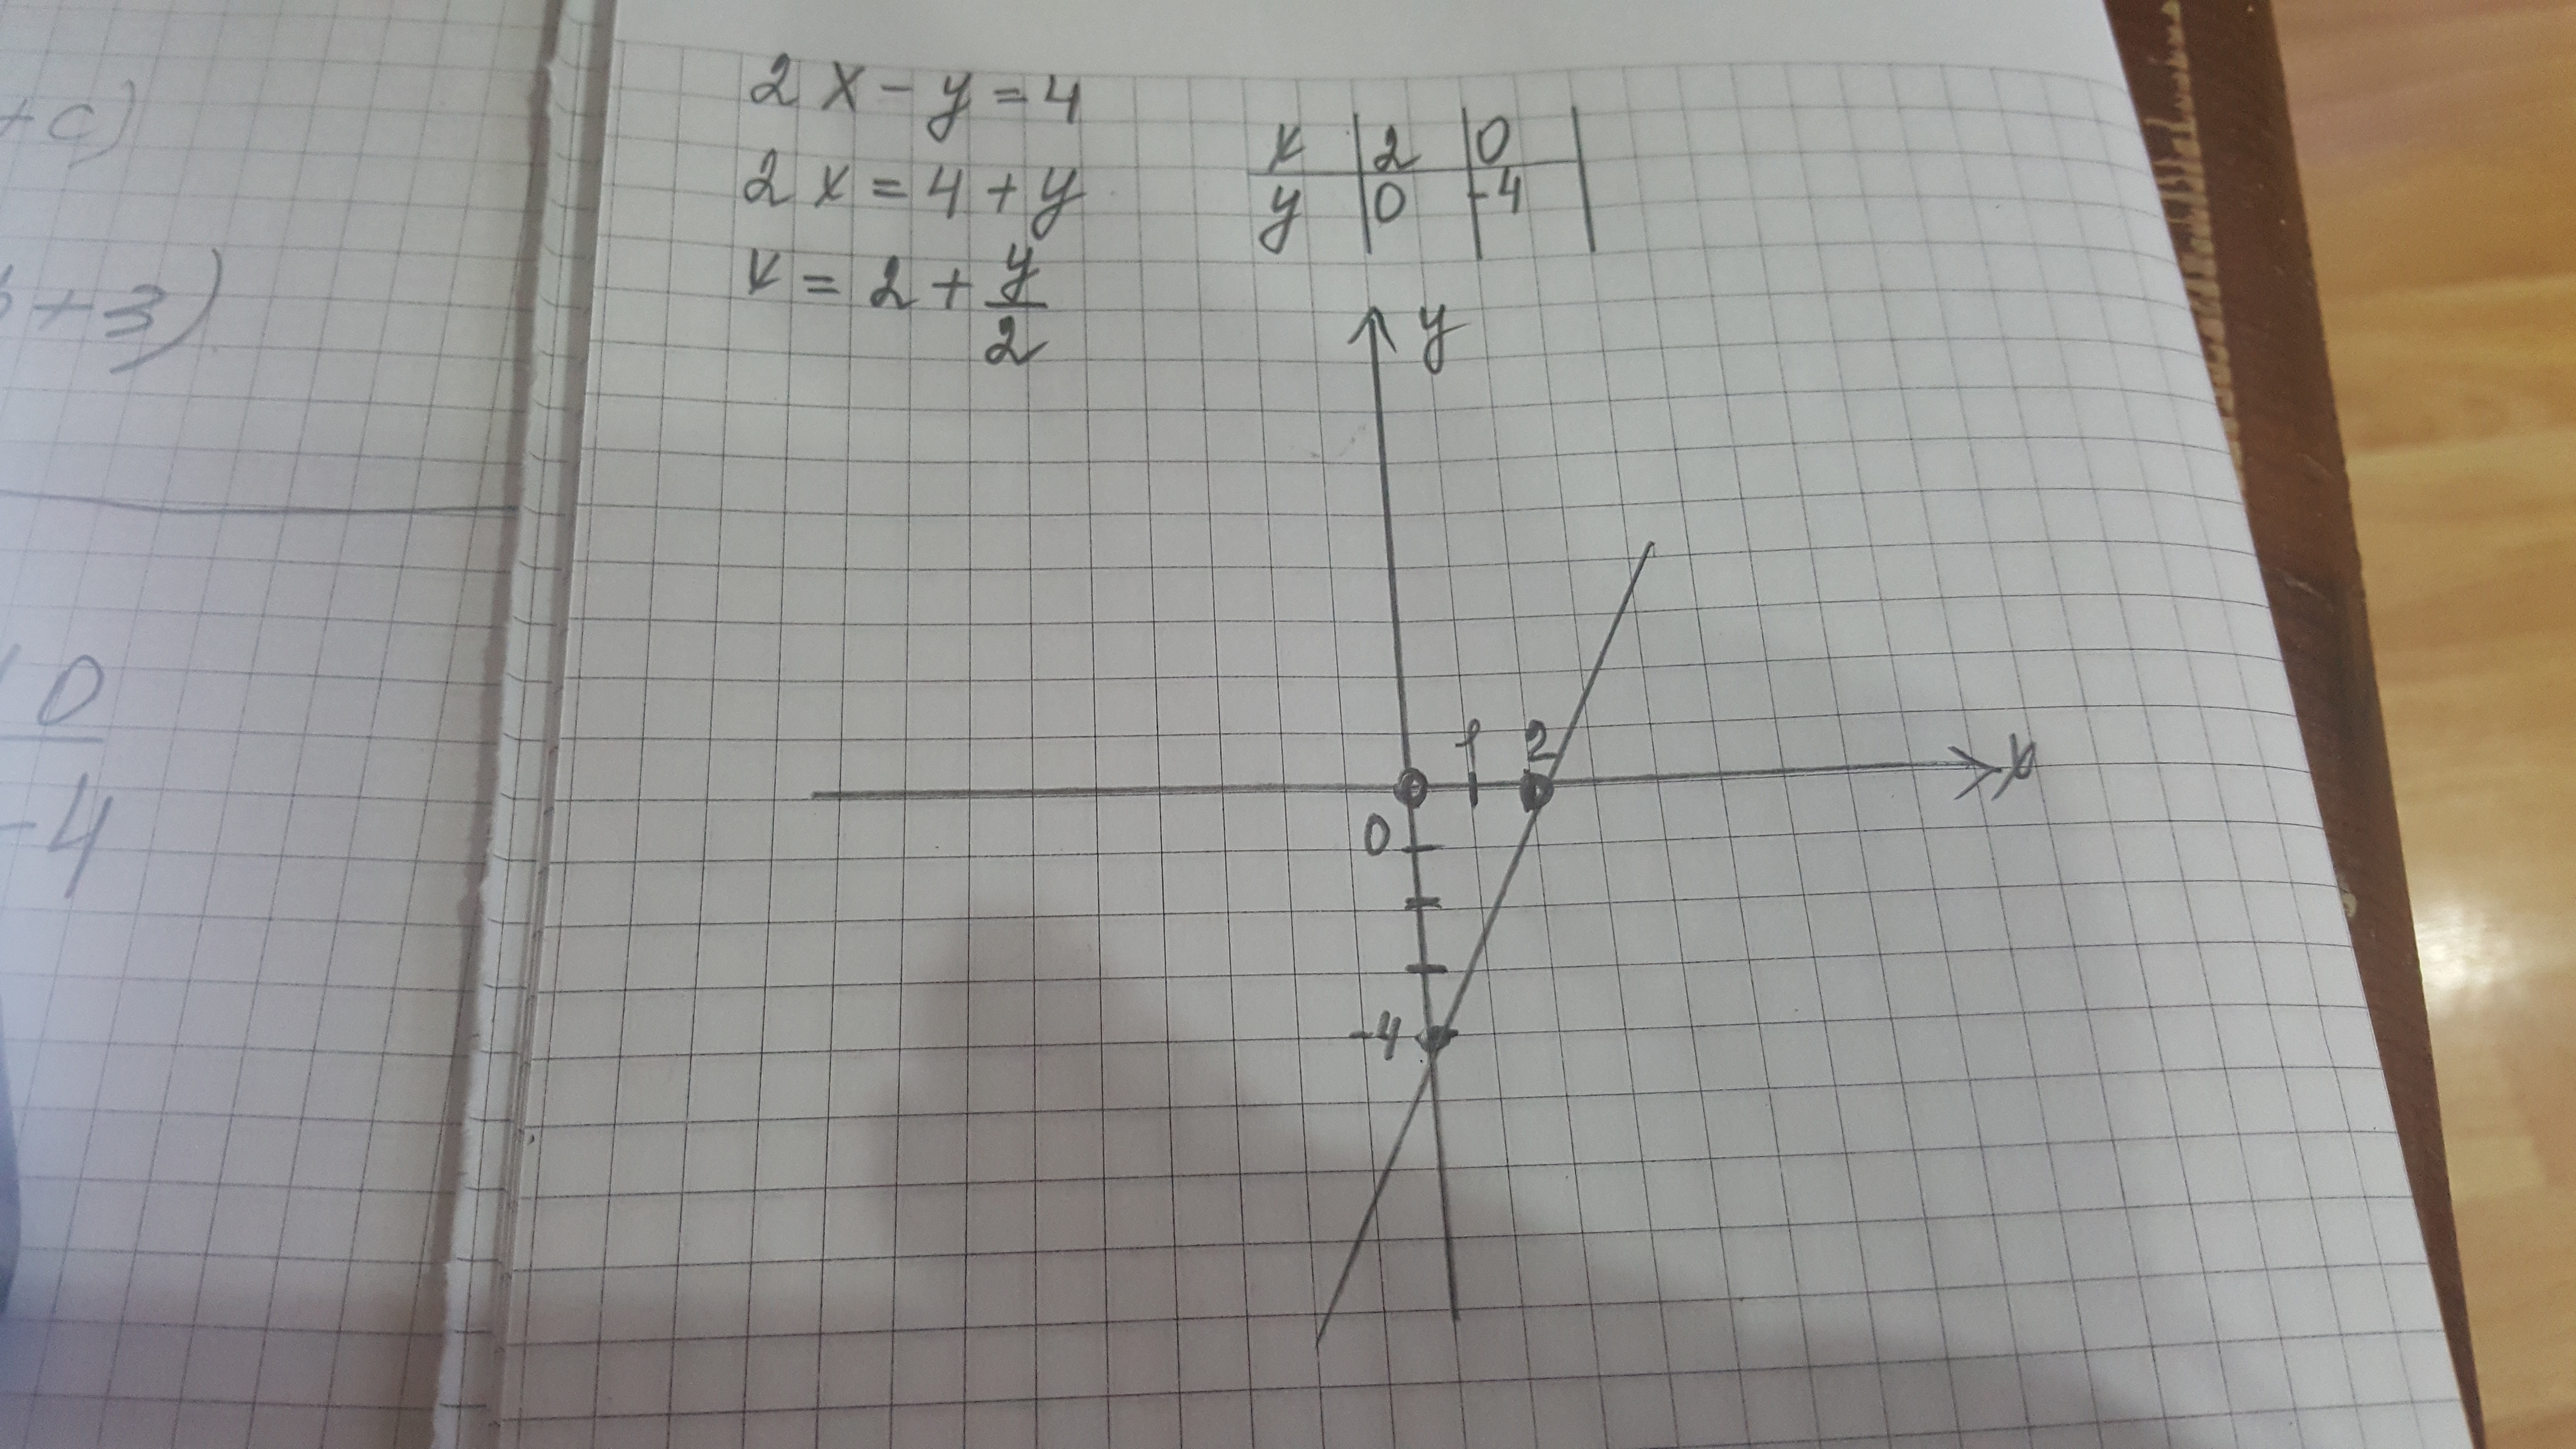 +c)
+3)
0
-4
2x-y=4
2x=4+y
x=2+y/2
x | 2 | 0
y | 0 | -4
y
1 2
x
0
-4